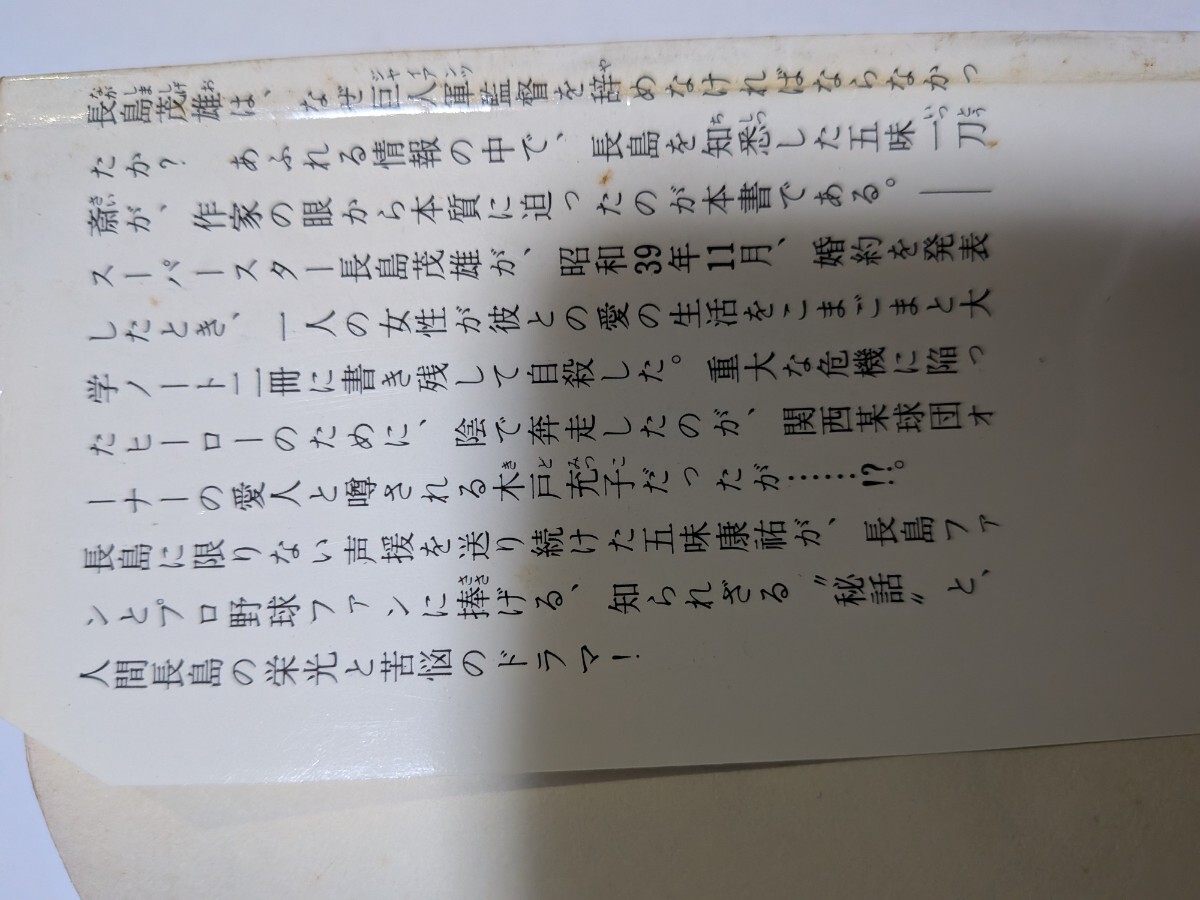 長島茂雄は、なぜ巨人軍監督を辞めなければならなかっ
たか？　あふれる情報の中で、長島を知悉した五味一刀
斎が、作家の眼から本質に迫ったのが本書である。――
スーパースター長島茂雄が、昭和39年11月、婚約を発表
したとき、一人の女性が彼との愛の生活をこまごまと大
学ノート二冊に書き残して自殺した。重大な危機に陥っ
たヒーローのために、陰で奔走したのが、関西某球団ォ
ーナーの愛人と噂される木戸充子だったが……!?。
長島に限りない声援を送り続けた五味康祐が、長島ファ
ンとプロ野球ファンに捧げる、知られざる〝秘話〟と、
人間長島の栄光と苦悩のドラマ！